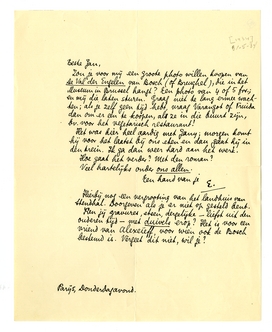 Beste Jan,
Zou je voor mij een groote photo willen koopen van
de Val der Engelen van Bosch (of Breughel), die in het
Museum in Brussel hangt? Een photo van 4 of 5 frs;
en mij die laten sturen. Graag niet te lang ermee wach-
ten; als je zelf geen tijd hebt, vraag Varangot of Frieda
dan om er een te koopen, als ze in die buurt zijn,
bv. voor het vegetarisch restaurant!
Het was hier heel aardig met Jany; morgen komt
hij voor het laatst bij ons eten en dan gaat hij in
den trein. Ik ga dan weer hard aan het werk.
Hoe gaat het verder? Met den roman?
Veel hartelijks onder ons allen.
Een hand van je
E.
Hierbij nog een vergrooting van het landhuis van
Stendhal. Doorgeven als je er niet op gesteld bent.
Ken jij gravures, etsen, dergelijke – liefst uit den
ouderen tijd – met duivels erop? Het is voor een
vriend van Alexeieff, voor wien ook de Bosch
bestemd is. Vergeet dit niet, wil je?
Parijs, Donderdagavond.